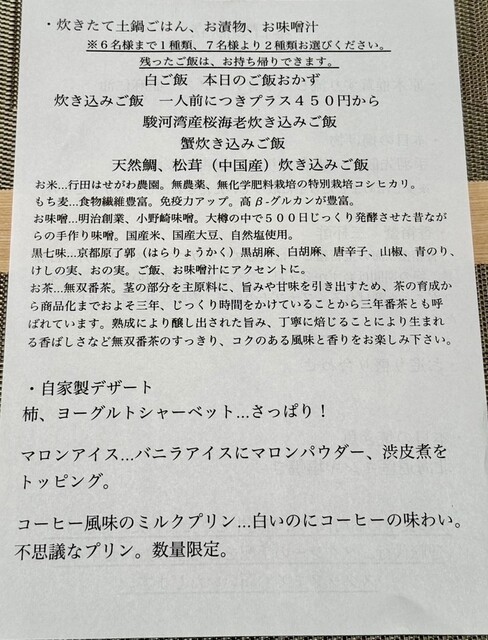 ・炊きたて土鍋ごはん、お漬物、お味噌汁
※６名様まで１種類、７名様より２種類お選びください。
残ったご飯は、お持ち帰りできます。
白ご飯　本日のご飯おかず
炊き込みご飯　一人前につきプラス４５０円から
駿河湾産桜海老炊き込みご飯
蟹炊き込みご飯
天然鯛、松茸（中国産）炊き込みご飯
お米…行田はせがわ農園。無農薬、無化学肥料栽培の特別栽培コシヒカリ。
もち麦…食物繊維豊富。免疫力アップ。高β-グルカンが豊富。
お味噌…明治創業、小野崎味噌。大樽の中で５００日じっくり発酵させた昔なが
らの手作り味噌。国産米、国産大豆、自然塩使用。
黒七味…京都原了郭（はらりょうかく）黒胡麻、白胡麻、唐辛子、山椒、青のり、
けしの実、おの実。ご飯、お味噌汁にアクセントに。
お茶…無双番茶。茎の部分を主原料に、旨みや甘味を引き出すため、茶の育成から
商品化までおよそ三年、じっくり時間をかけていることから三年番茶とも呼
ばれています。熟成により醸し出された旨み、丁寧に焙じることにより生まれ
る香ばしさなど無双番茶のすっきり、コクのある風味と香りをお楽しみ下さい。
・自家製デザート
柿、ヨーグルトシャーベット…さっぱり！
マロンアイス…バニラアイスにマロンパウダー、渋皮煮を
トッピング。
コーヒー風味のミルクプリン…白いのにコーヒーの味わい。
不思議なプリン。数量限定。